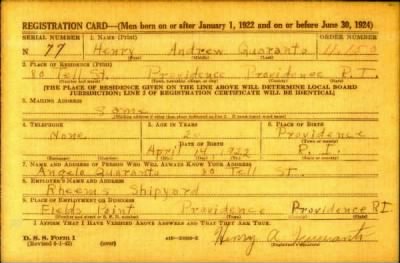 REGISTRATION CARD—(Men born on or after January 1, 1922 and on or before June 30, 1924)
SERIAL NUMBER 1. NAME (Print) ORDER NUMBER
N 77 Henry Andrew Quaranto
(First) (Middle) (Last)
2. PLACE OF RESIDENCE (Print)
80 Tell St. Providence Providence R. I.
[THE PLACE OF RESIDENCE GIVEN ON THE LINE ABOVE WILL DETERMINE LOCAL BOARD
JURISDICTION; LINE 2 OF REGISTRATION CERTIFICATE WILL BE IDENTICAL]
3. MAILING ADDRESS
Same
4. TELEPHONE 5. AGE IN YEARS 6. PLACE OF BIRTH
None 20 Providence
DATE OF BIRTH
April 14, 1922 R. I.
7. NAME AND ADDRESS OF PERSON WHO WILL ALWAYS KNOW YOUR ADDRESS
Angelo Quaranto 80 Tell St.
8. EMPLOYER'S NAME AND ADDRESS
Rheems Shipyard
9. PLACE OF EMPLOYMENT OR BUSINESS
Fields Point Providence Providence R I
I AFFIRM THAT I HAVE VERIFIED ABOVE ANSWERS AND THAT THEY ARE TRUE.
D. S. S. Form 1
(Revised 6-1-42) (over) Henry A Quaranto